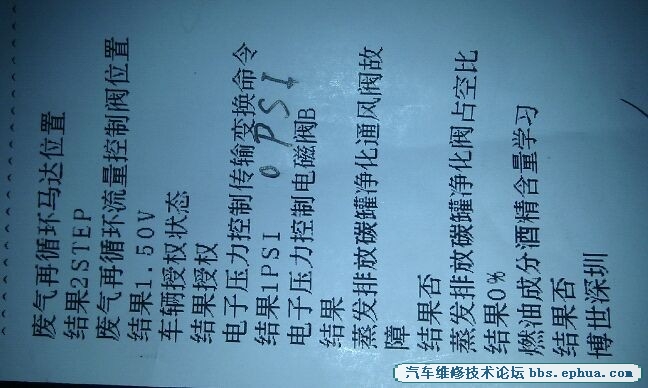 废气再循环马达位置
结果2STEP
废气再循环流量控制阀位置
结果1.50V
车辆授权状态
结果授权
电子压力控制传输变换命令
结果1PSI 0PSI
电子压力控制电磁阀B
结果
蒸发排放碳罐净化通风阀故
障
结果否
蒸发排放碳罐净化阀占空比
结果0%
燃油成分酒精含量学习
结果否
博世深圳
汽车维修技术论坛 bbs.ephua.com